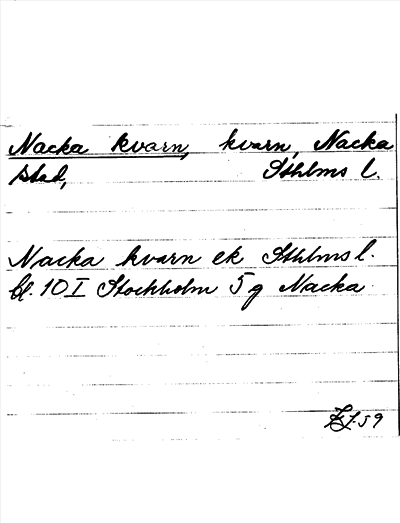 Nacka kvarn, kvarn, Nacka
stad, Sthlms l.
Nacka kvarn ek Sthlms l.
bl. 10 I Stockholm 5 g Nacka
59